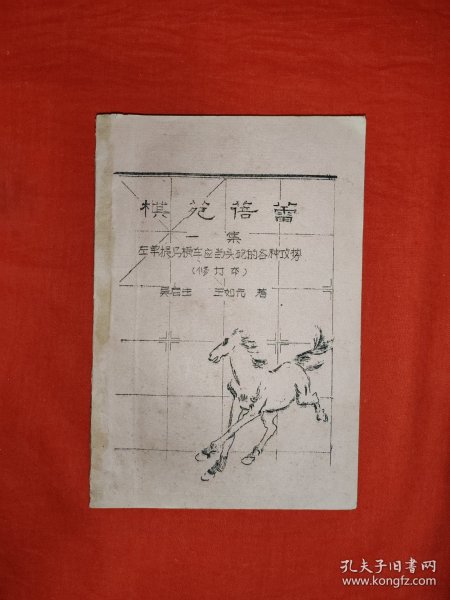 棋苑蓓蕾
一集
左单提马横车应当头炮的各种攻势
(修订本)
王如元 著
孔夫子旧书网
www.kongfz.com